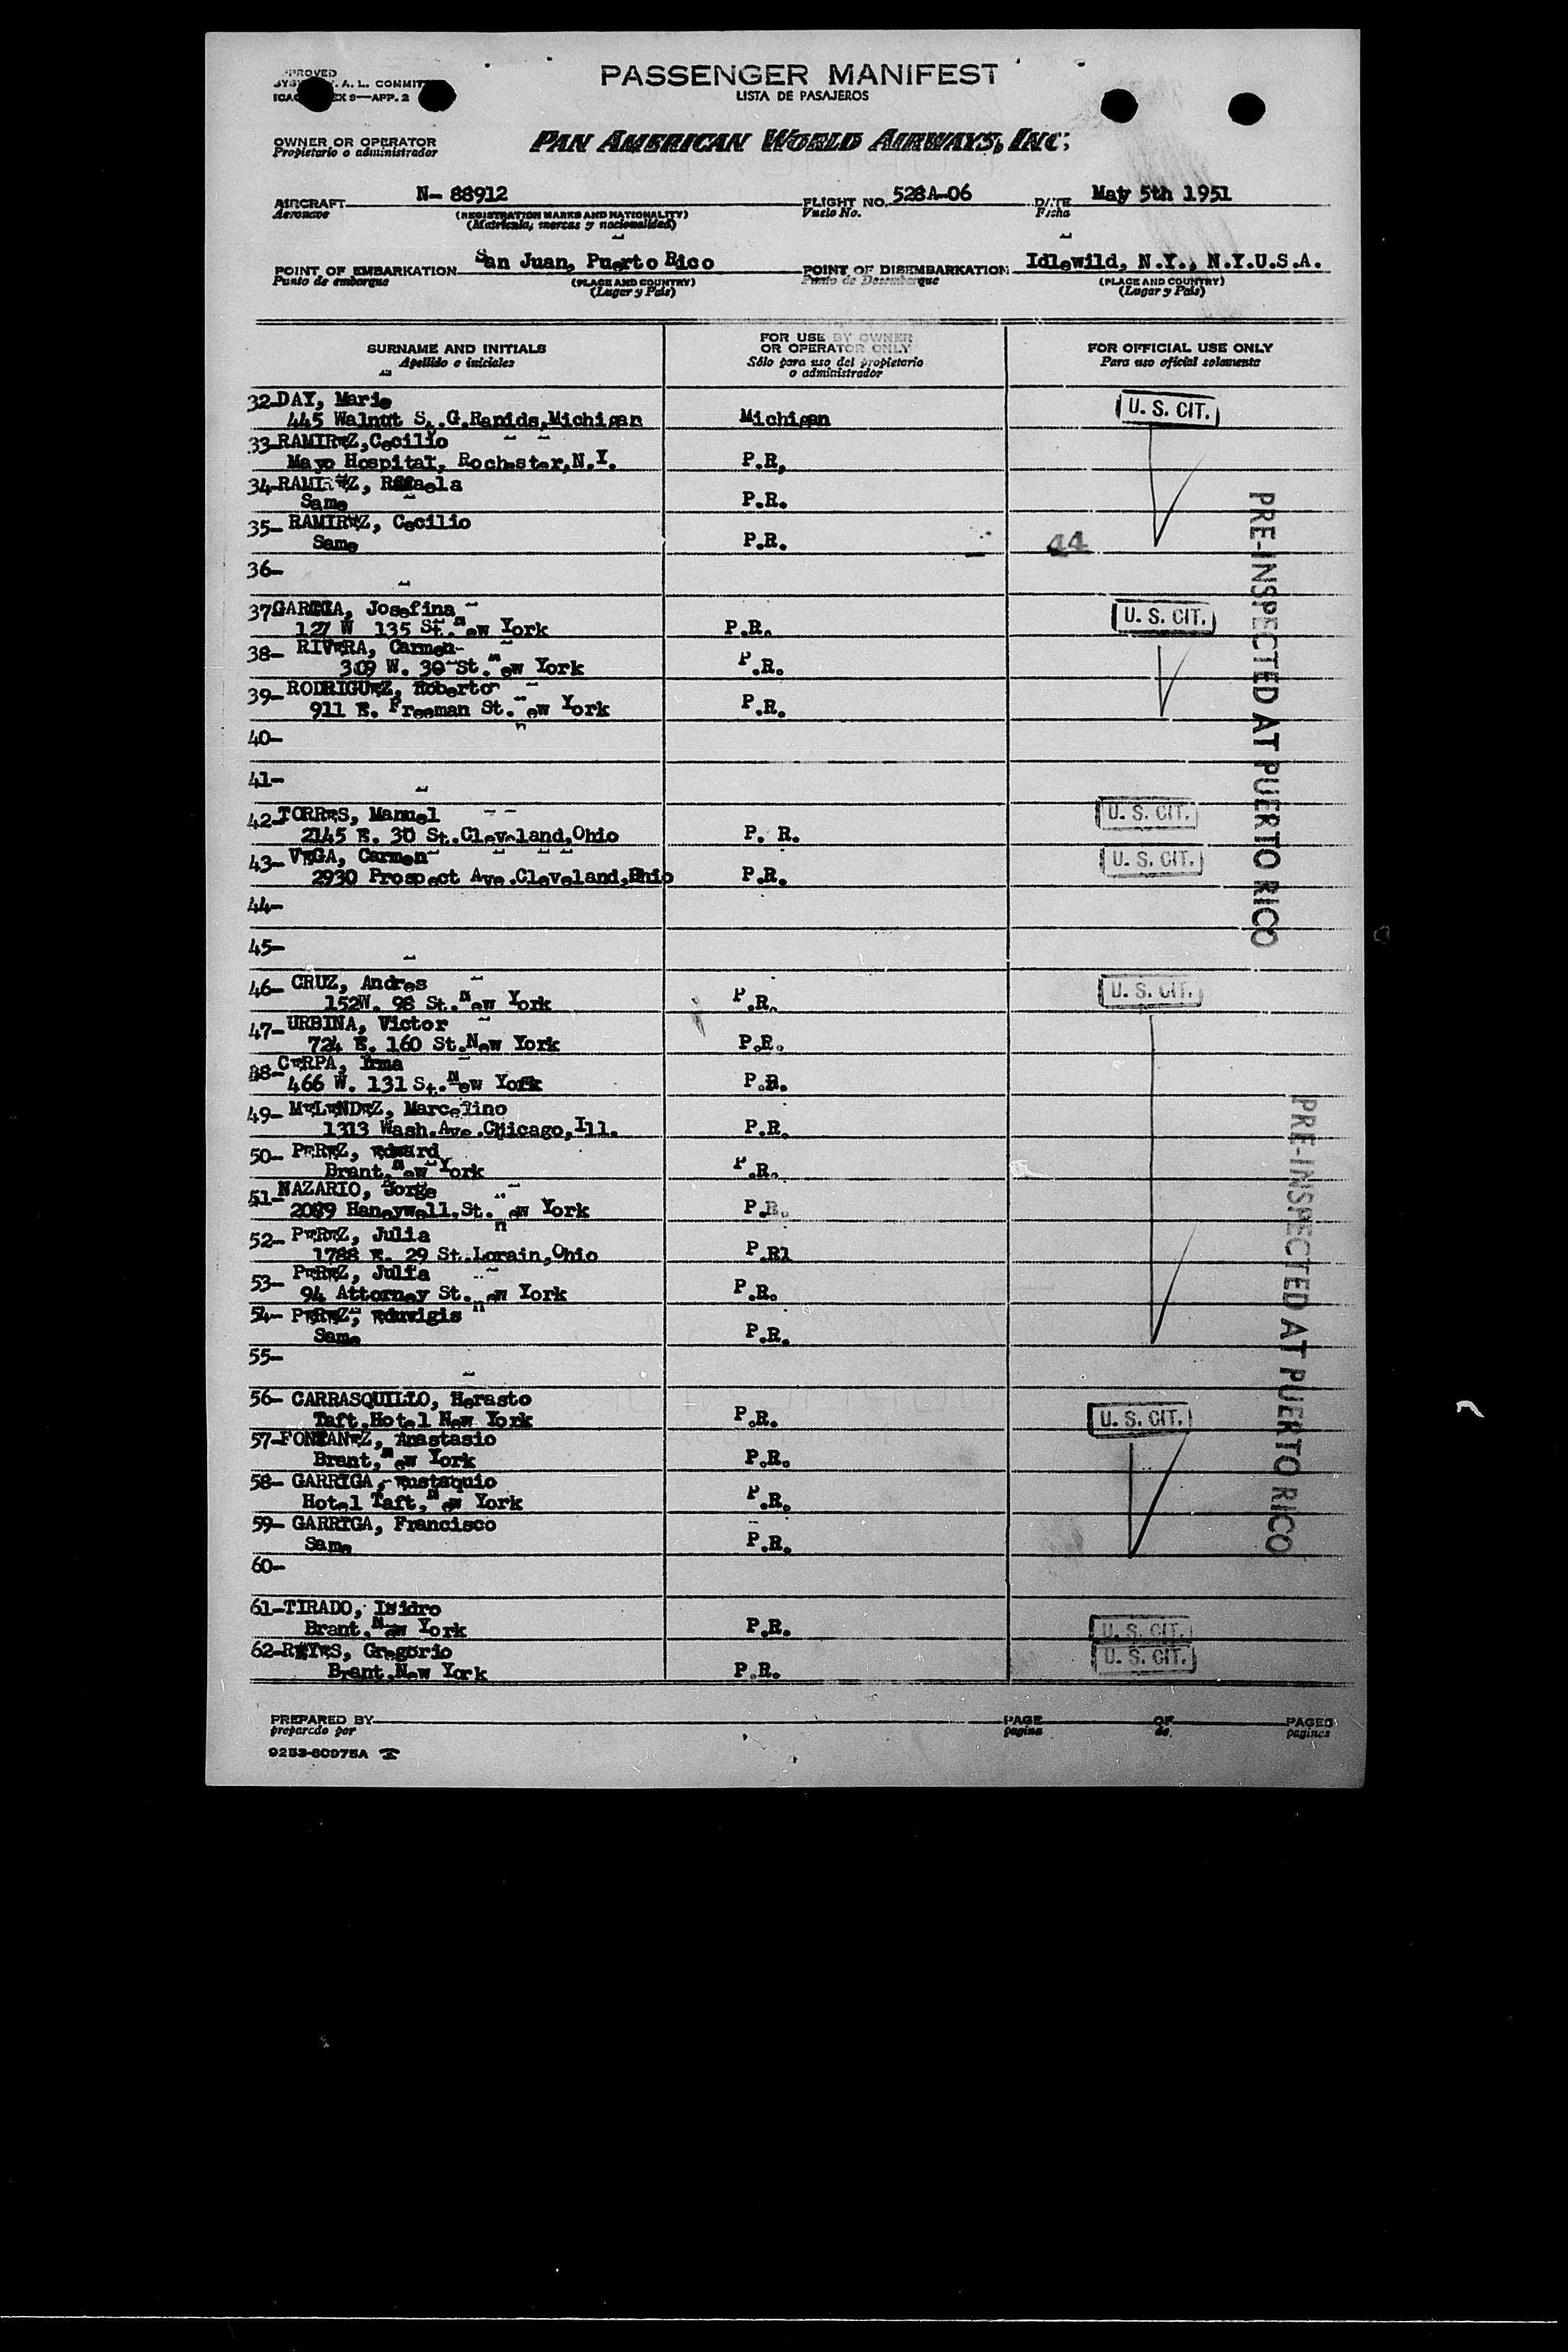 PASSENGER MANIFEST
LISTA DE PASAJEROS
A. L. COMMIT
APP. 2
OWNER OR OPERATOR
Propietario o administrador
PAN AMERICAN WORLD AIRWAYS, INC;
AIRCRAFT N- 88912 FLIGHT NO. 528A-06 DATE May 5th 1951
Aeronave (REGISTRATION MARKS AND NATIONALITY) Vuelo No. Fecha
(Matricula, marcas y nacionalidad)
POINT OF EMBARKATION San Juan, Puerto Rico POINT OF DISEMBARKATION Idlewild, N.Y., N.Y.U.S.A.
Punto de embarque (PLACE AND COUNTRY) Punto de Desembarque (PLACE AND COUNTRY)
(Lugar y País) (Lugar y País)
SURNAME AND INITIALS
Apellido e iniciales
FOR USE BY OWNER
OR OPERATOR ONLY
Sólo para uso del propietario
o administrador
FOR OFFICIAL USE ONLY
Para uso oficial solamente
32-DAY, Marie
445 Walnut St.G.Rapids,Michigan Michigan U. S. CIT.
33-RAMIREZ,Cecilio
Mayo Hospital, Rochester,N.Y. P.R,
34-RAMIREZ, Rafaela
Same P.R.
35- RAMIREZ, Cecilio
Same P.R. 44
36-
37GARCIA, Josefina
127 W 135 St.New York P.R. U. S. CIT.
38- RIVERA, Carmen
309 W. 30 St. New York P.R.
39-RODRIGUEZ, Roberto
911 E. Freeman St. New York P.R.
40-
41-
42-TORRES, Manuel
2145 E. 30 St.Cleveland,Ohio P. R. U. S. CIT.
43- VEGA, Carmen
2930 Prospect Ave.Cleveland,Ohio P.R. U. S. CIT.
44-
45-
46- CRUZ, Andres
152W. 98 St.New York P.R. U. S. CIT.
47-URBINA, Victor
724 E. 160 St.New York P.R.
48-CERPA, Irma
466 W. 131 St.New York P.R.
49- MELENDEZ, Marcelino
1313 Wash.Ave.Chicago,Ill. P.R.
50- PEREZ, Edward
Brant,New York P.R.
51-NAZARIO, Jorge
Haneywell.St. New York P.R.
52- PEREZ, Julia
1788 E. 29 St.Lorain,Ohio P.R1
53- PEREZ, Julia
94 Attorney St. New York P.R.
54- PEREZ, Eduvigis
Same P.R.
55-
56- CARRASQUILLO, Herasto
Taft.Hotel New York P.R. U. S. CIT.
57-FONTANEZ, Anastasio
Brant,New York P.R.
58- GARRIGA, Eustaquio
Hotel Taft,New York P.R.
59- GARRIGA, Francisco
Same P.R.
60-
61-TIRADO, Isidro
Brant,New York P.R. U. S. CIT.
62-REYES, Gregorio
Brant.New York P.R. U. S. CIT.
PRE-INSPECTED AT PUERTO RICO
PRE-INSPECTED AT PUERTO RICO
PREPARED BY PAGE OF PAGES
preparado por pagina de paginas
9253-60975A